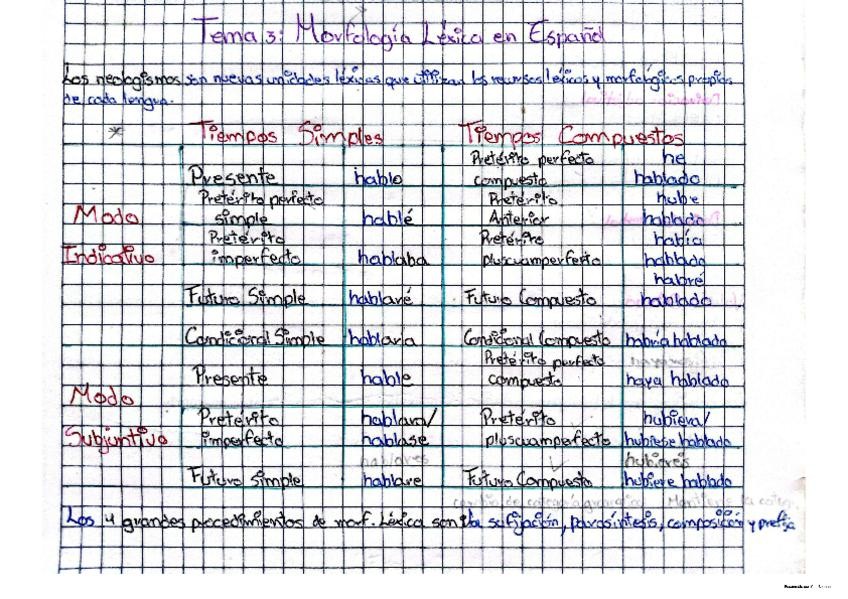 Tema 3: Morfología Léxica en Español
Los neologismos son nuevas unidades léxicas que utilizan los recursos léxicos y morfológicos propios
de cada lengua.
* Tiempos Simples Tiempos Compuestos
Modo Indicativo
Presente hablo Pretérito perfecto compuesto he hablado
Pretérito perfecto simple hablé Pretérito Anterior hube hablado
Pretérito imperfecto hablaba Pretérito pluscuamperfecto había hablado
Futuro Simple hablaré Futuro Compuesto habré hablado
Condicional Simple hablaría Condicional Compuesto habría hablado
Modo Subjuntivo
Presente hable Pretérito perfecto compuesto haya hablado
Pretérito imperfecto hablara/ hablase Pretérito pluscuamperfecto hubiera/ hubiese hablado
hablares hubieres
Futuro Simple hablare Futuro Compuesto hubiere hablado
Los 4 grandes procedimientos de morf. Léxica son la sufijación, parasíntesis, composición y prefija